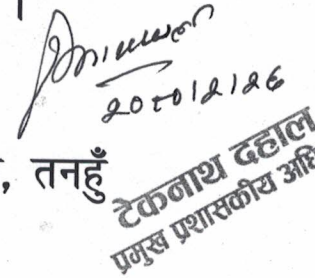 २०८०।२।२६
, तनहुँ
टेकनाथ दहाल
प्रमुख प्रशासकीय अधि